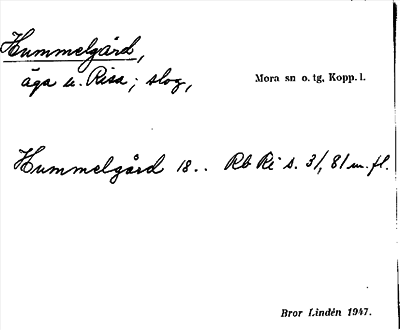 Hummelgård,
äga u. Risa; slog,
Mora sn o. tg, Kopp. l.
Hummelgård 18.. Rb Ri s. 31, 81 m. fl.
Bror Lindén 1947.